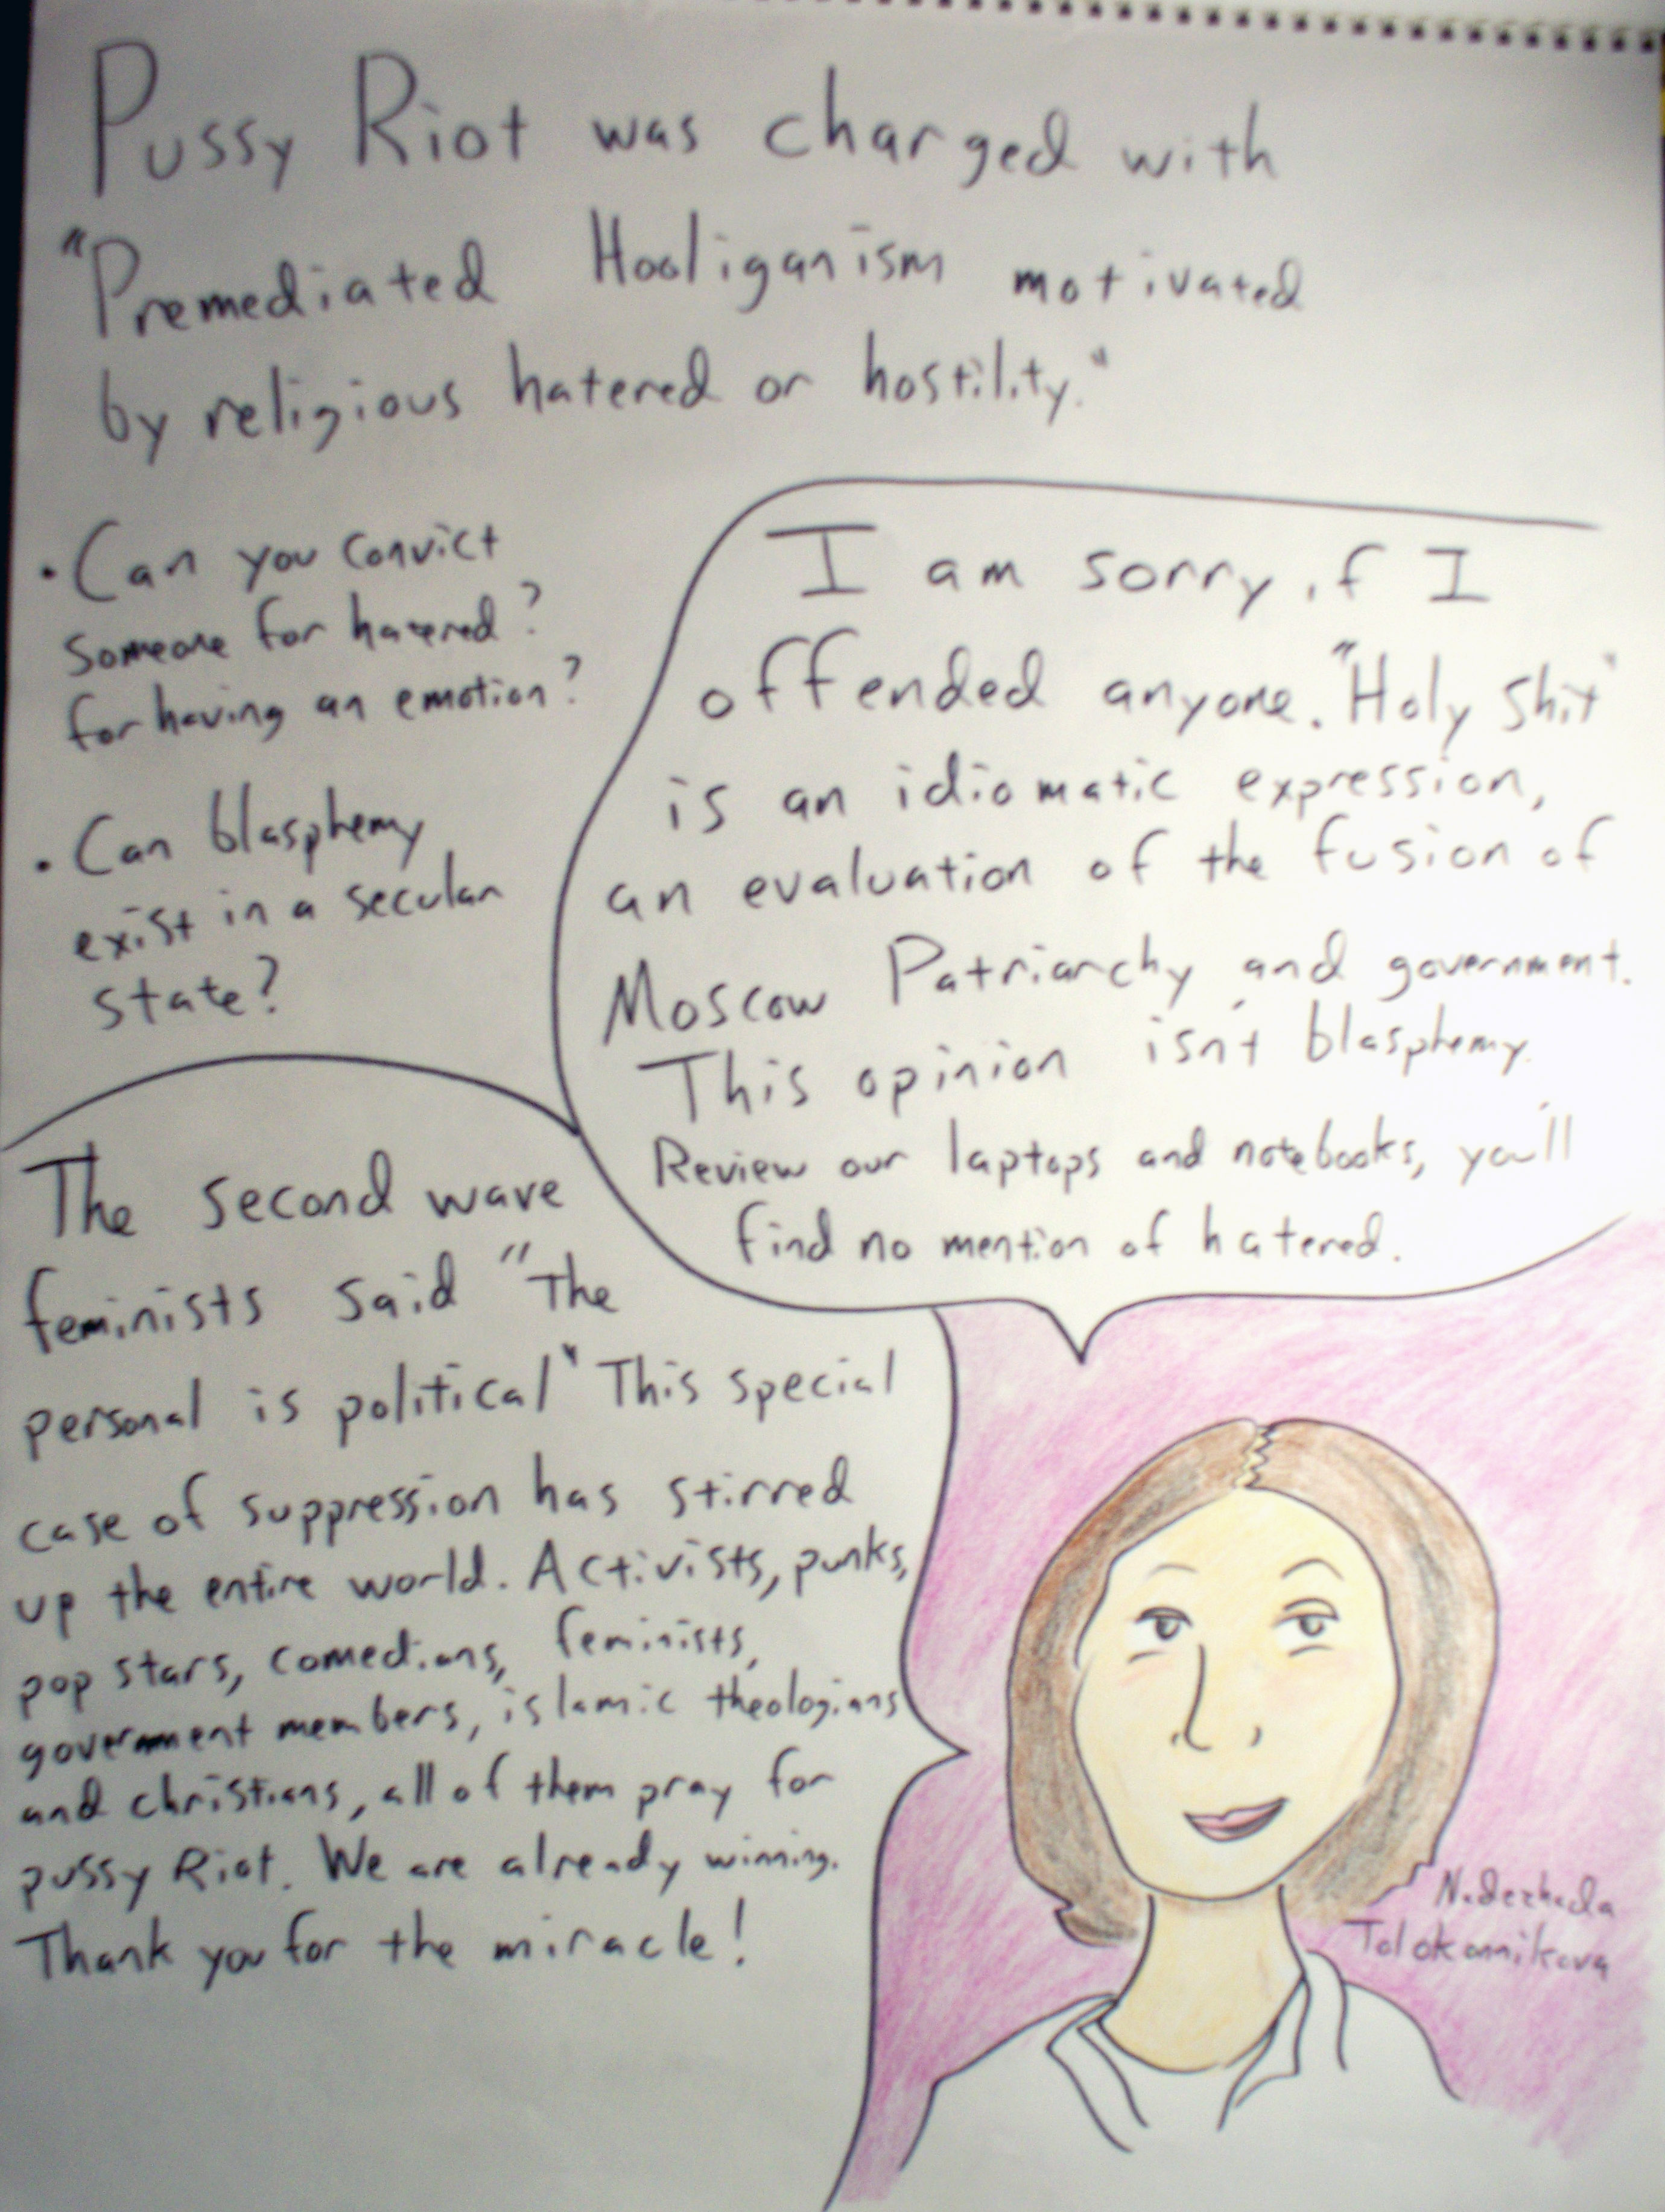 Pussy Riot was charged with
"Premediated Hooliganism motivated
by religious hatered or hostility."
• Can you convict
someone for hatered?
for having an emotion?
• Can blasphemy
exist in a secular
state?
I am sorry if I
offended anyone. "Holy shit"
is an idiomatic expression,
an evaluation of the fusion of
Moscow Patriarchy and government.
This opinion isn't blasphemy.
Review our laptops and notebooks, you'll
find no mention of hatered.
The second wave
feminists said "The
personal is political" This special
case of suppression has stirred
up the entire world. Activists, punks,
pop stars, comedians, feminists,
government members, islamic theologians
and christians, all of them pray for
pussy Riot. We are already winning.
Thank you for the miracle!
Nadezhada
Tolokonnikova